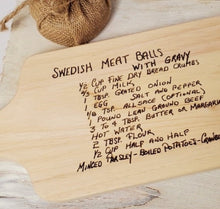 SWEDISH MEAT BALLS
WITH GRAVY
1/2 CUP FINE DRY BREAD CRUMBS
2/3 CUP MILK
1 TBSP. GRATED ONION
1 EGG SALT AND PEPPER
1/8 TSP. ALLSPICE (OPTIONAL)
1 POUND LEAN GROUND BEEF
3 TO 4 TBSP. BUTTER OR MARGARINE
HOT WATER
2 TBSP. FLOUR
1/2 CUP HALF AND HALF
MINCED PARSLEY - BOILED POTATOES -